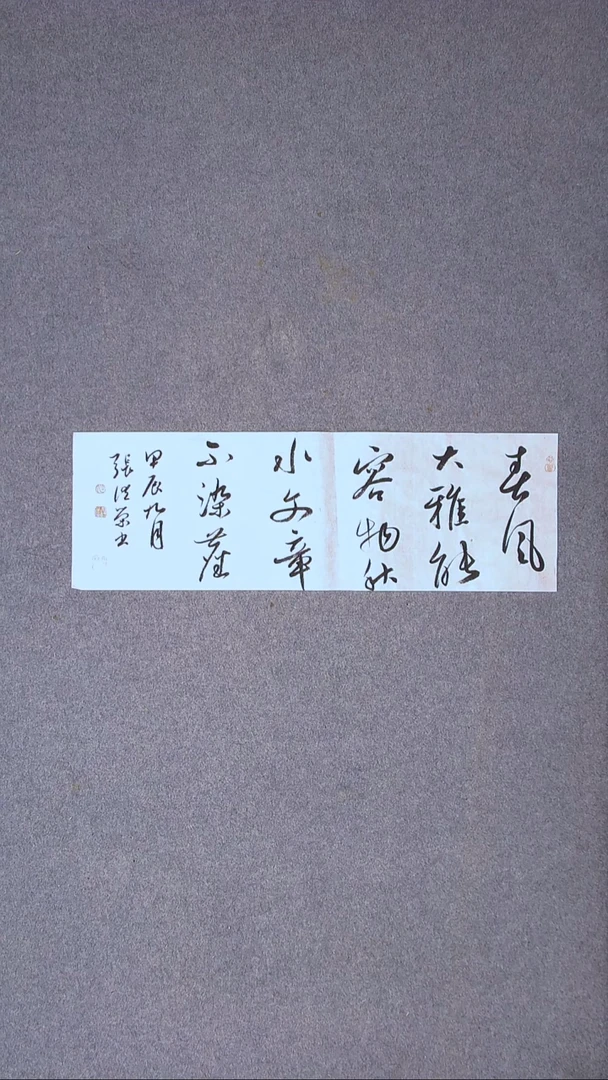 春风
大雅能
容物秋
水文章
不染塵
甲辰九月
張洪榮书